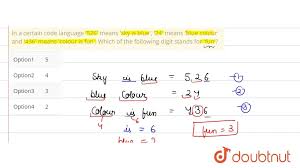 In a certain code language '526' means 'sky is blue', '24' means 'blue colour'
and '436' means 'colour is fun'. Which of the following digit stands for 'fun'?
Option1 5
Option2 4
Option3 3
Option4 2
Sky is blue = 5,2 6 ①
blue Colour = 2 4 ②
Colour is fun = 4 3 6 ③
4 6
is = 6
fun = 3
blue = 2
doubtnut